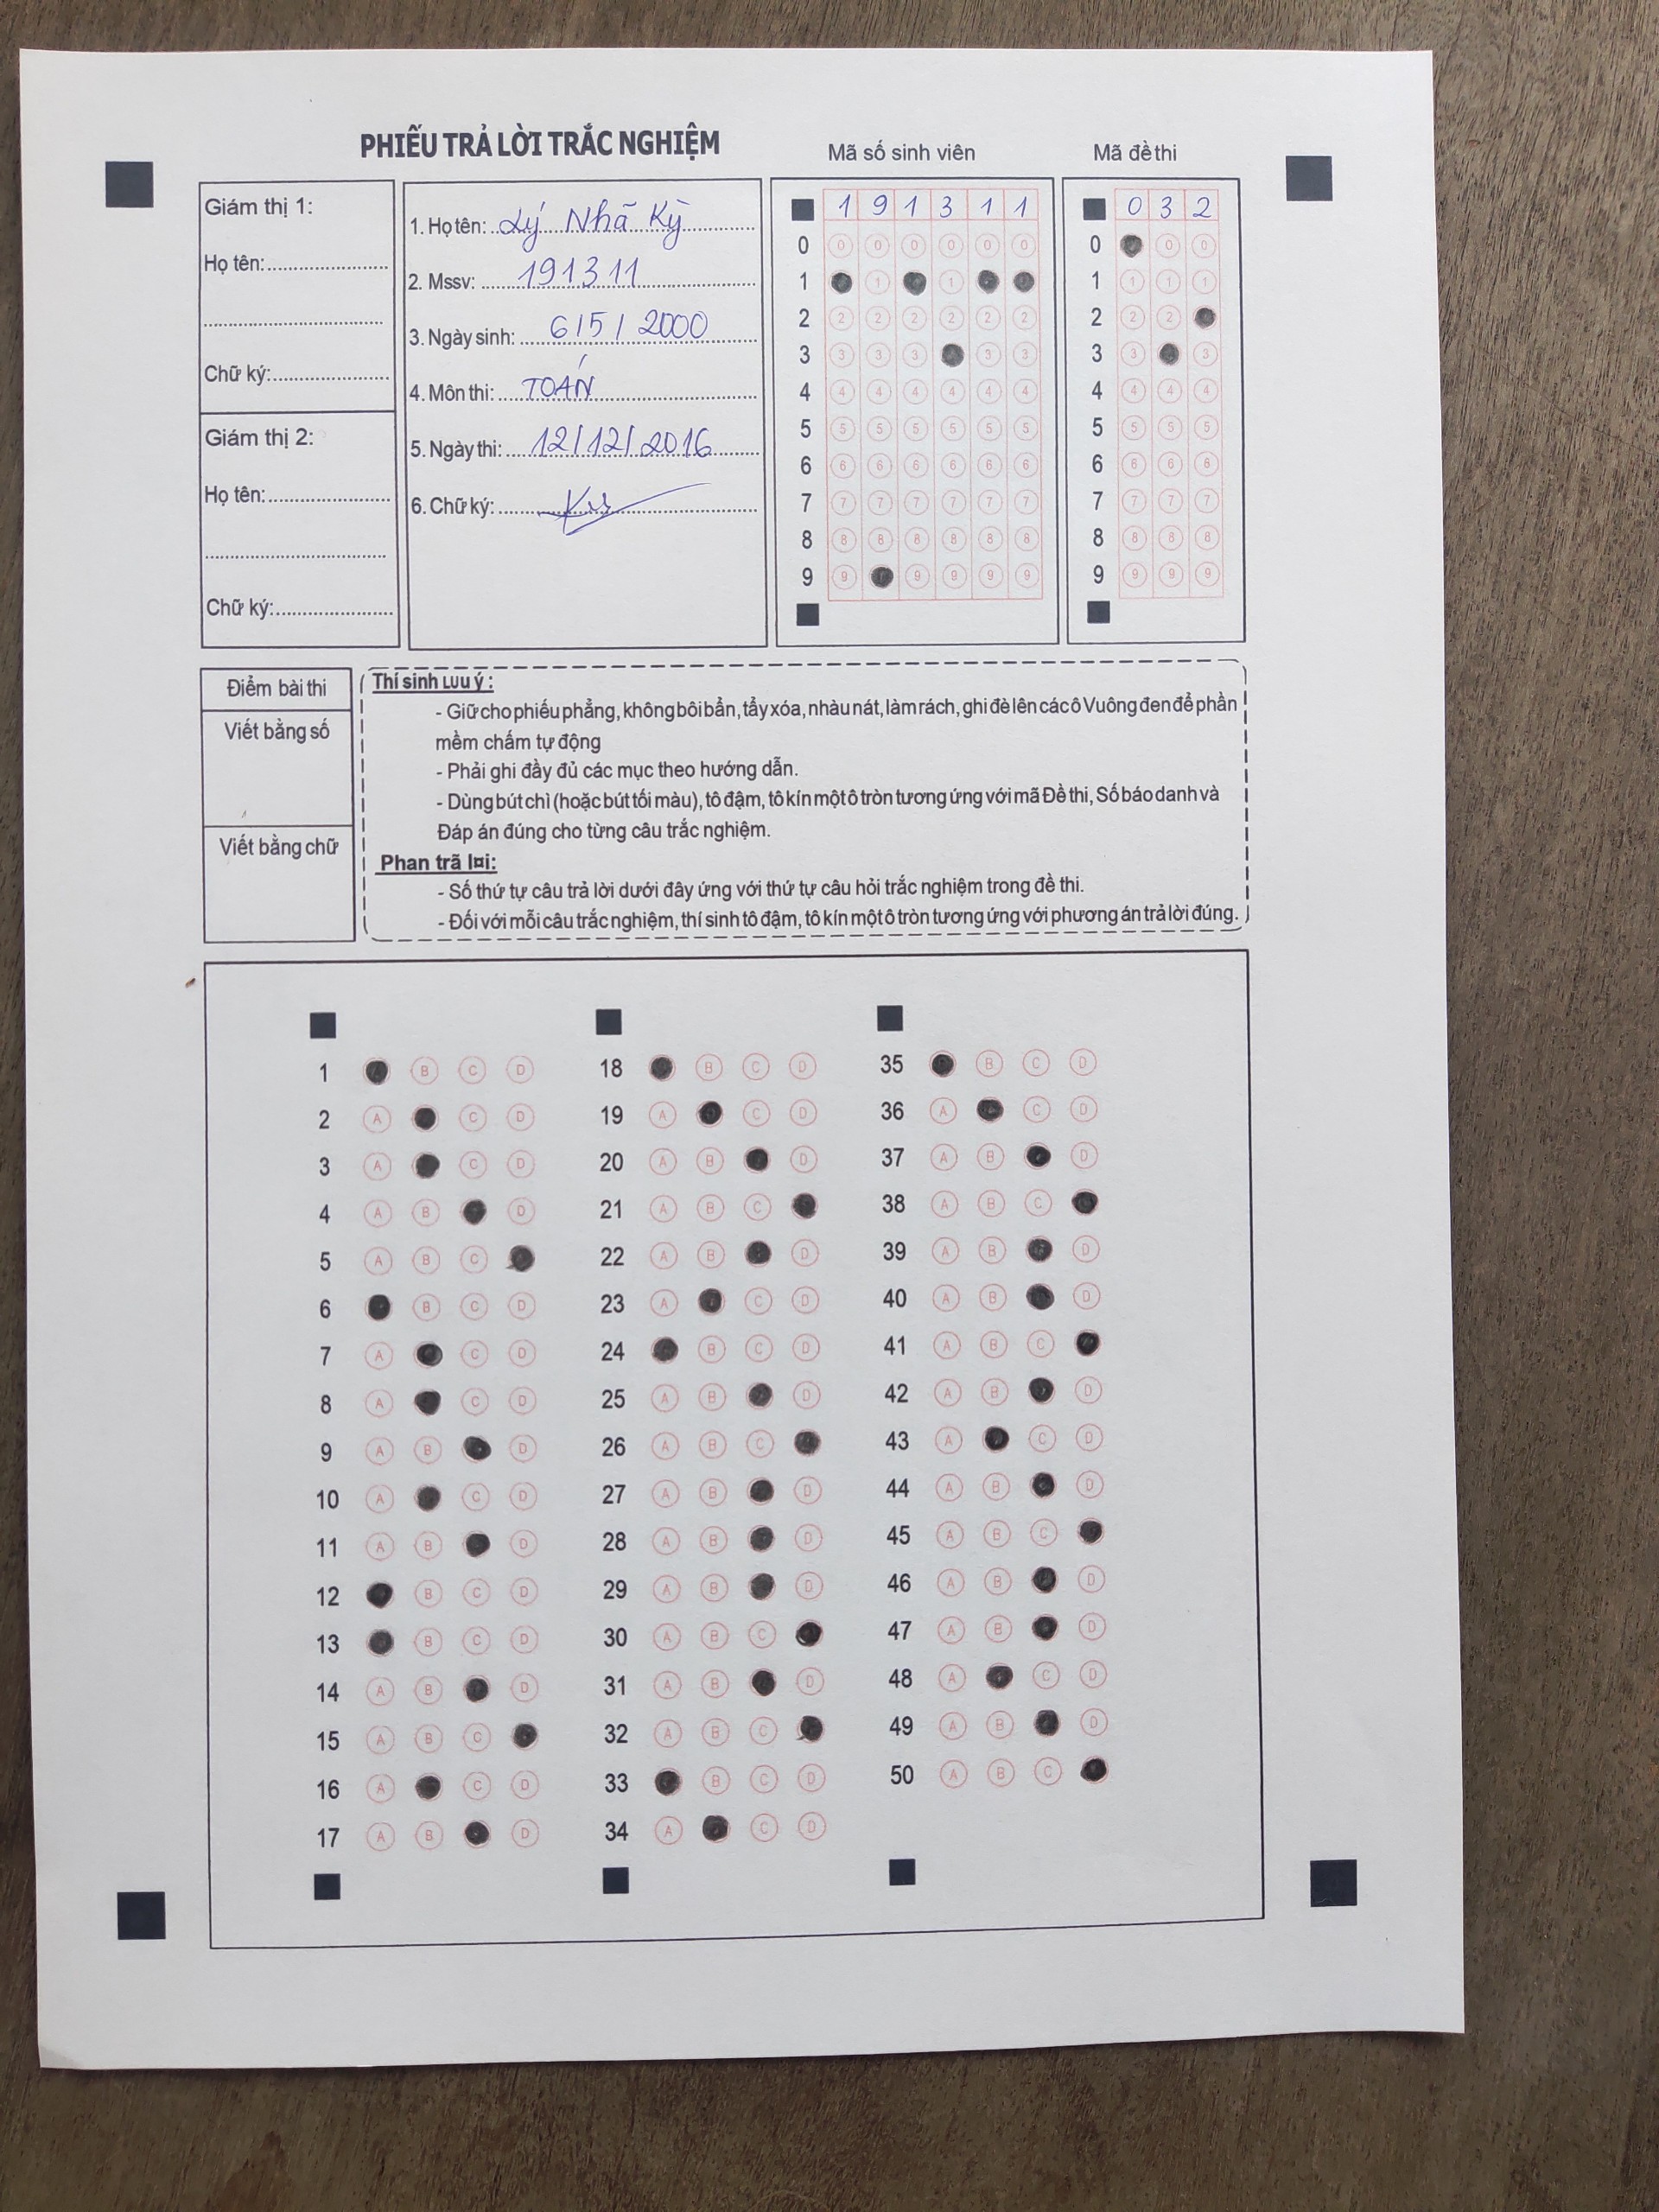 PHIẾU TRẢ LỜI TRẮC NGHIỆM
Mã số sinh viên
Mã đề thi
Giám thị 1:
Họ tên:
Chữ ký:
Giám thị 2:
Họ tên:
Chữ ký:
1. Họ tên: Lý Nhã Kỳ
2. Mssv: 191311
3. Ngày sinh: 6/5/2000
4. Môn thi: TOÁN
5. Ngày thi: 12/12/2016
6. Chữ ký:
1 9 1 3 1 1
0 0 0 0 0 0 0
1 1 1
2 2 2 2 2 2 2
3 3 3 3 3 3
4 4 4 4 4 4 4
5 5 5 5 5 5 5
6 6 6 6 6 6 6
7 7 7 7 7 7 7
8 8 8 8 8 8 8
9 9 9 9 9 9
0 3 2
0 0 0
1 1 1 1
2 2 2
3 3 3
4 4 4 4
5 5 5 5
6 6 6 6
7 7 7 7
8 8 8 8
9 9 9 9
Điểm bài thi
Viết bằng số
Viết bằng chữ
Thí sinh LƯU ý :
- Giữ cho phiếu phẳng, không bôi bẩn, tẩy xóa, nhàu nát, làm rách, ghi đè lên các ô Vuông đen để phần
mềm chấm tự động
- Phải ghi đầy đủ các mục theo hướng dẫn.
- Dùng bút chì (hoặc bút tối màu), tô đậm, tô kín một ô tròn tương ứng với mã Đề thi, Số báo danh và
Đáp án đúng cho từng câu trắc nghiệm.
Phan trã l¤i:
- Số thứ tự câu trả lời dưới đây ứng với thứ tự câu hỏi trắc nghiệm trong đề thi.
- Đối với mỗi câu trắc nghiệm, thí sinh tô đậm, tô kín một ô tròn tương ứng với phương án trả lời đúng.
1 B C D
2 A C D
3 A C D
4 A B D
5 A B C
6 B C D
7 A C D
8 A C D
9 A B D
10 A C D
11 A B D
12 B C D
13 B C D
14 A B D
15 A B C
16 A C D
17 A B D
18 B C D
19 A C D
20 A B D
21 A B C
22 A B D
23 A C D
24 B C D
25 A B D
26 A B C
27 A B D
28 A B D
29 A B D
30 A B C
31 A B D
32 A B C
33 B C D
34 A C D
35 B C D
36 A C D
37 A B D
38 A B C
39 A B D
40 A B D
41 A B C
42 A B D
43 A C D
44 A B D
45 A B C
46 A B D
47 A B D
48 A C D
49 A B D
50 A B C